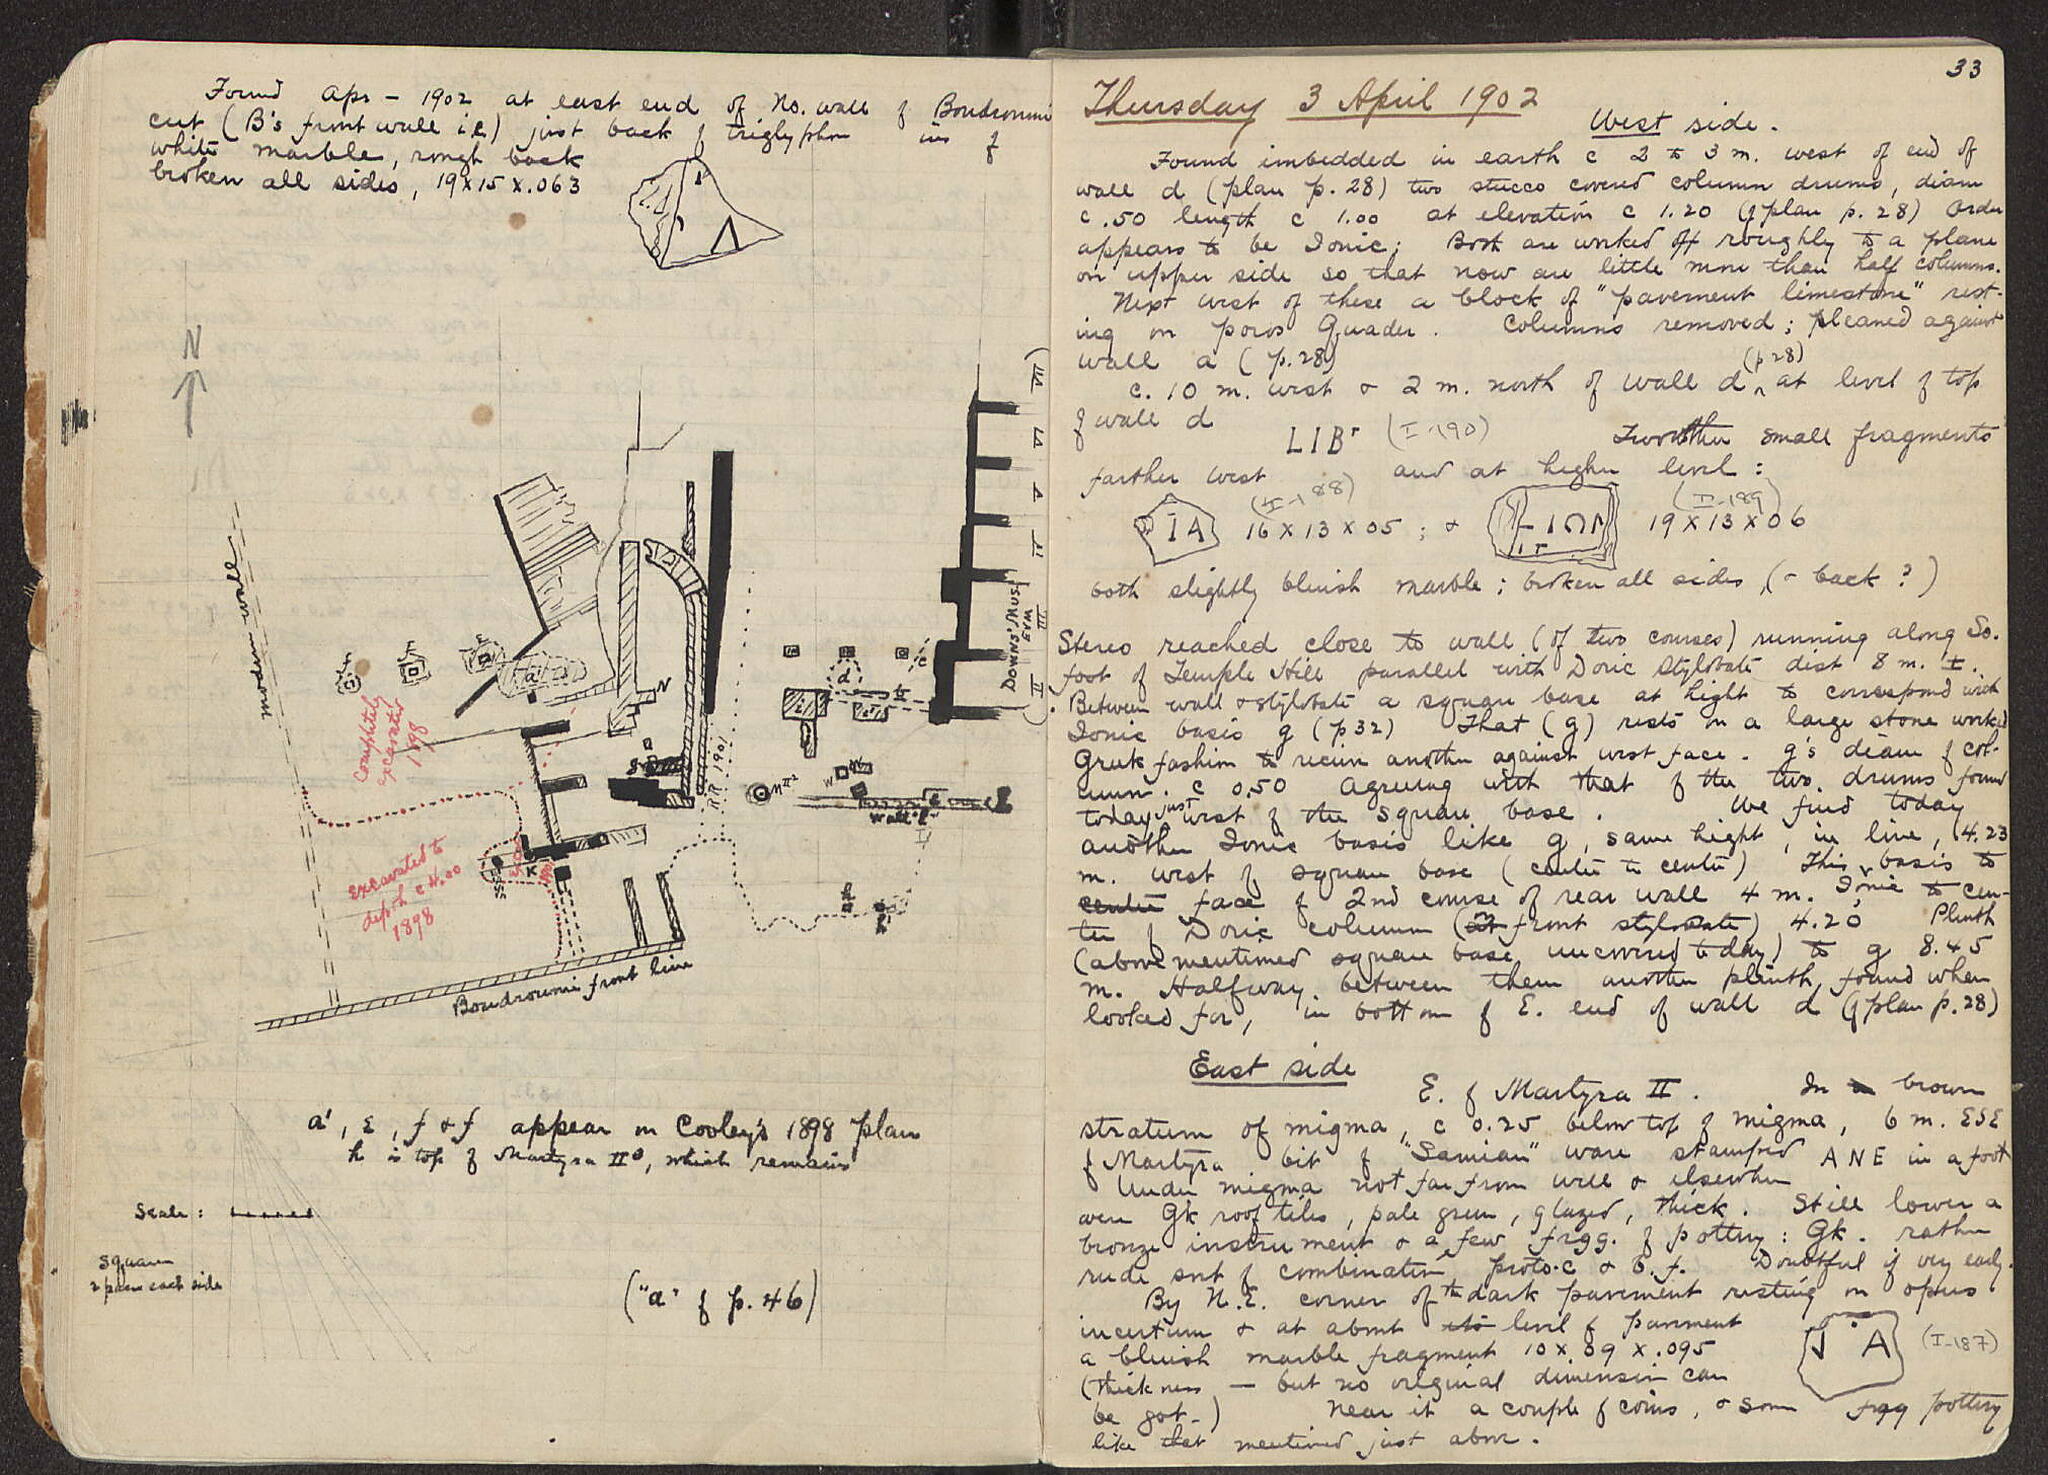 Found Apr - 1902 at east end of No. wall of Boudroumi
cut (B's front wall i.e.) just back of triglyphon ins of
white marble, rough back
broken all sides, 19 x 15 x .063
Λ
N
modern wall
Completely
excavated
1898
excavated to
depth c 4.00
1898
Boudroumi front line
DOWNS' MUSEUM
VII
VI
V
IV
III
II
1901
wall
a', ε, f & f appear on Cooley's 1898 plan
h is top of Martyra II, which remains
Scale:
square
2 paces each side
("a" of p. 46)
33
Thursday 3 April 1902
West side.
Found imbedded in earth c 2 to 3 m. west of end of
wall d (plan p. 28) two stucco covered column drums, diam
c .50 length c 1.00 at elevation c 1.20 (cf plan p. 28) Order
appears to be Ionic; Both are worked off roughly to a plane
on upper side so that now are little more than half columns.
Next west of these a block of "pavement limestone" rest-
ing on poros Quader. Columns removed; pleaned against
wall a (p. 28)
c. 10 m. west & 2 m. north of wall d (p 28) at level of top
of wall d
LIB (I-190) Two other small fragments
farther west and at higher level:
(I-188) (I-189)
IA 16 x 13 x 05; & 19 x 13 x 06
both slightly bluish marble; broken all sides, (& back?)
Stereo reached close to wall (of two courses) running along So.
foot of Temple Hill parallel with Doric Stylobate dist 8 m. ±.
Between wall & stylobate a square base at hight to correspond with
Ionic basis g (p 32) That (g) rests on a large stone worked
Greek fashion to recieve another against west face. g's diam of col-
umn. c 0.50 agreeing with that of the two drums found
today just west of the square base. We find today
another Ionic basis like g, same hight, in line, 4.23
m. west of square base (center to center) This Ionic basis to
center face of 2nd course of rear wall 4 m. to cen-
ter of Doric column (at front stylobate) 4.20 Plinth
(above mentioned square base uncovered today) to g 8.45
m. Halfway between them another plinth, found when
looked for, in bottom of E. end of wall d (cf plan p. 28)
East side
E. of Martyra II. In a brown
stratum of migma, c 0.25 below top of migma, 6 m. ESE
of Martyra bit of "Samian" ware stamped ANE in a foot
Under migma not far from well & elsewhere
were Gk roof tiles, pale green, glazed, thick. Still lower a
bronze instrument & a few frgg. of pottery: Gk. rather
rude sort of combination proto-c & b.f. Doubtful if very early.
By N.E. corner of the dark pavement resting on opus
incertum & at about its level of pavement
a bluish marble fragment 10 x .09 x .095 A (I-187)
(thickness — but no original dimension can
be got-) Near it a couple of coins, & some frgg pottery
like that mentioned just above.